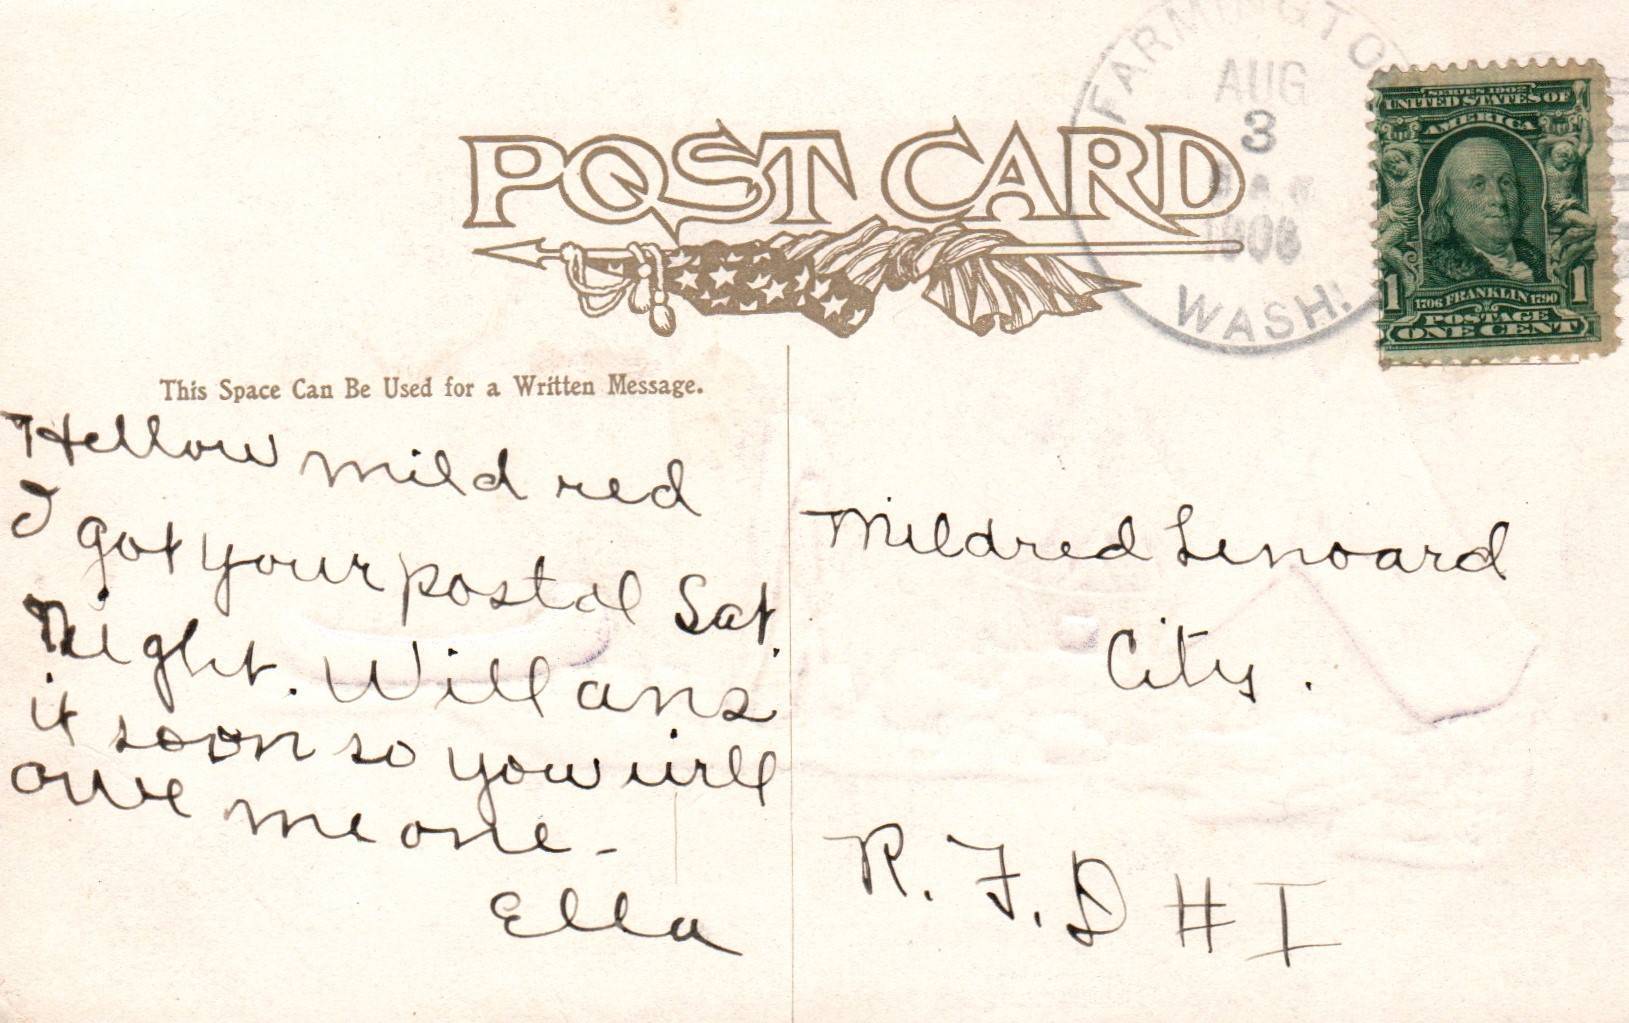 FARMINGTO
AUG
3
1908
WASH.
SERIES 1902
UNITED STATES OF
AMERICA
1706 FRANKLIN 1790
1 1
POSTAGE
ONE CENT
POST CARD
This Space Can Be Used for a Written Message.
Hellow mildred
I got your postal Sat.
Night. Will ans
it soon so you will
owe me one -
Ella
Mildred Lenoard
City.
R. F. D # I